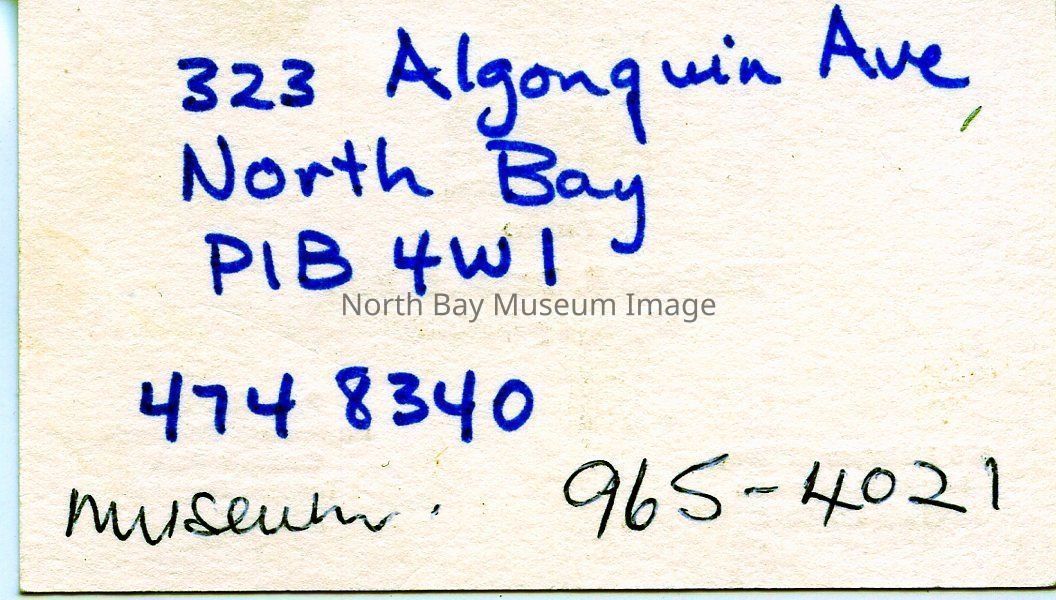 323 Algonquin Ave
North Bay
P1B 4W1
North Bay Museum Image
474 8340
museum. 965-4021